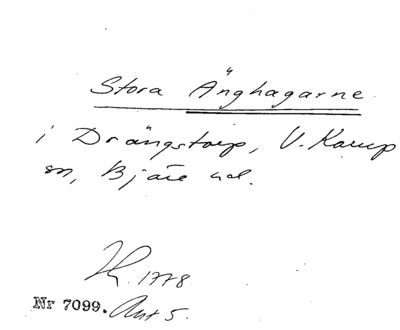 Stora Änghagarne
i Drängstorp, V. Karup
sn, Bjäre hd.
1778
Nr 7099. Akt 5.